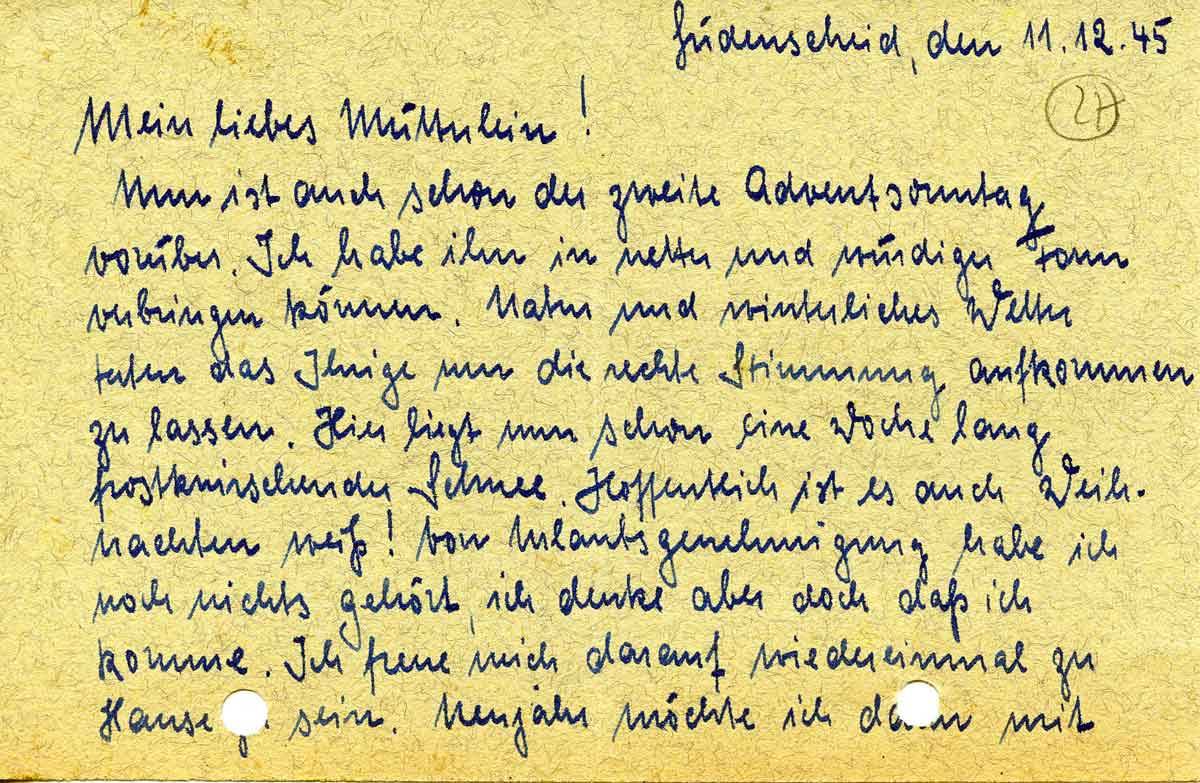 Lüdenscheid, den 11.12.45
24
Mein liebes Mütterlein!
Nun ist auch schon der zweite Adventsonntag
vorüber. Ich habe ihn in netter und würdiger Form
verbringen können. Natur und winterliches Wetter
taten das Ihrige um die rechte Stimmung aufkommen
zu lassen. Hier liegt nun schon eine Woche lang
frostknirschender Schnee. Hoffentlich ist es auch Weih-
nachten weiß! Von Urlaubsgenehmigung habe ich
noch nichts gehört, ich denke aber doch daß ich
komme. Ich freue mich darauf wiedereinmal zu
Hause sein. Neujahr möchte ich dann mit